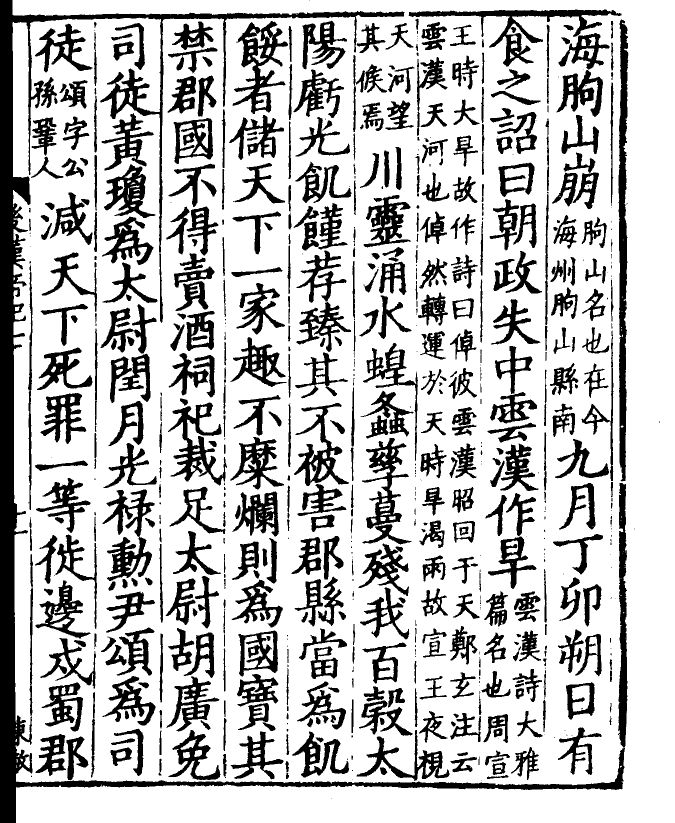 海朐山崩朐山名也在今海州朐山縣南九月丁卯朔日有
食之詔曰朝政失中雲漢作旱雲漢詩大雅篇名也周宣
王時大旱故作詩曰倬彼雲漢昭回于天鄭玄注云雲漢天河也倬然轉運於天時旱渴雨故宣王夜視
天河望其候焉川靈涌水蝗螽孳蔓殘我百穀太
陽虧光飢饉荐臻其不被害郡縣當爲飢
餒者儲天下一家趣不糜爛則爲國寶其
禁郡國不得賣酒祠祀裁足太尉胡廣免
司徒黃瓊爲太尉閏月光祿勳尹頌爲司
徒頌字公孫鞏人減天下死罪一等徙邊戍蜀郡